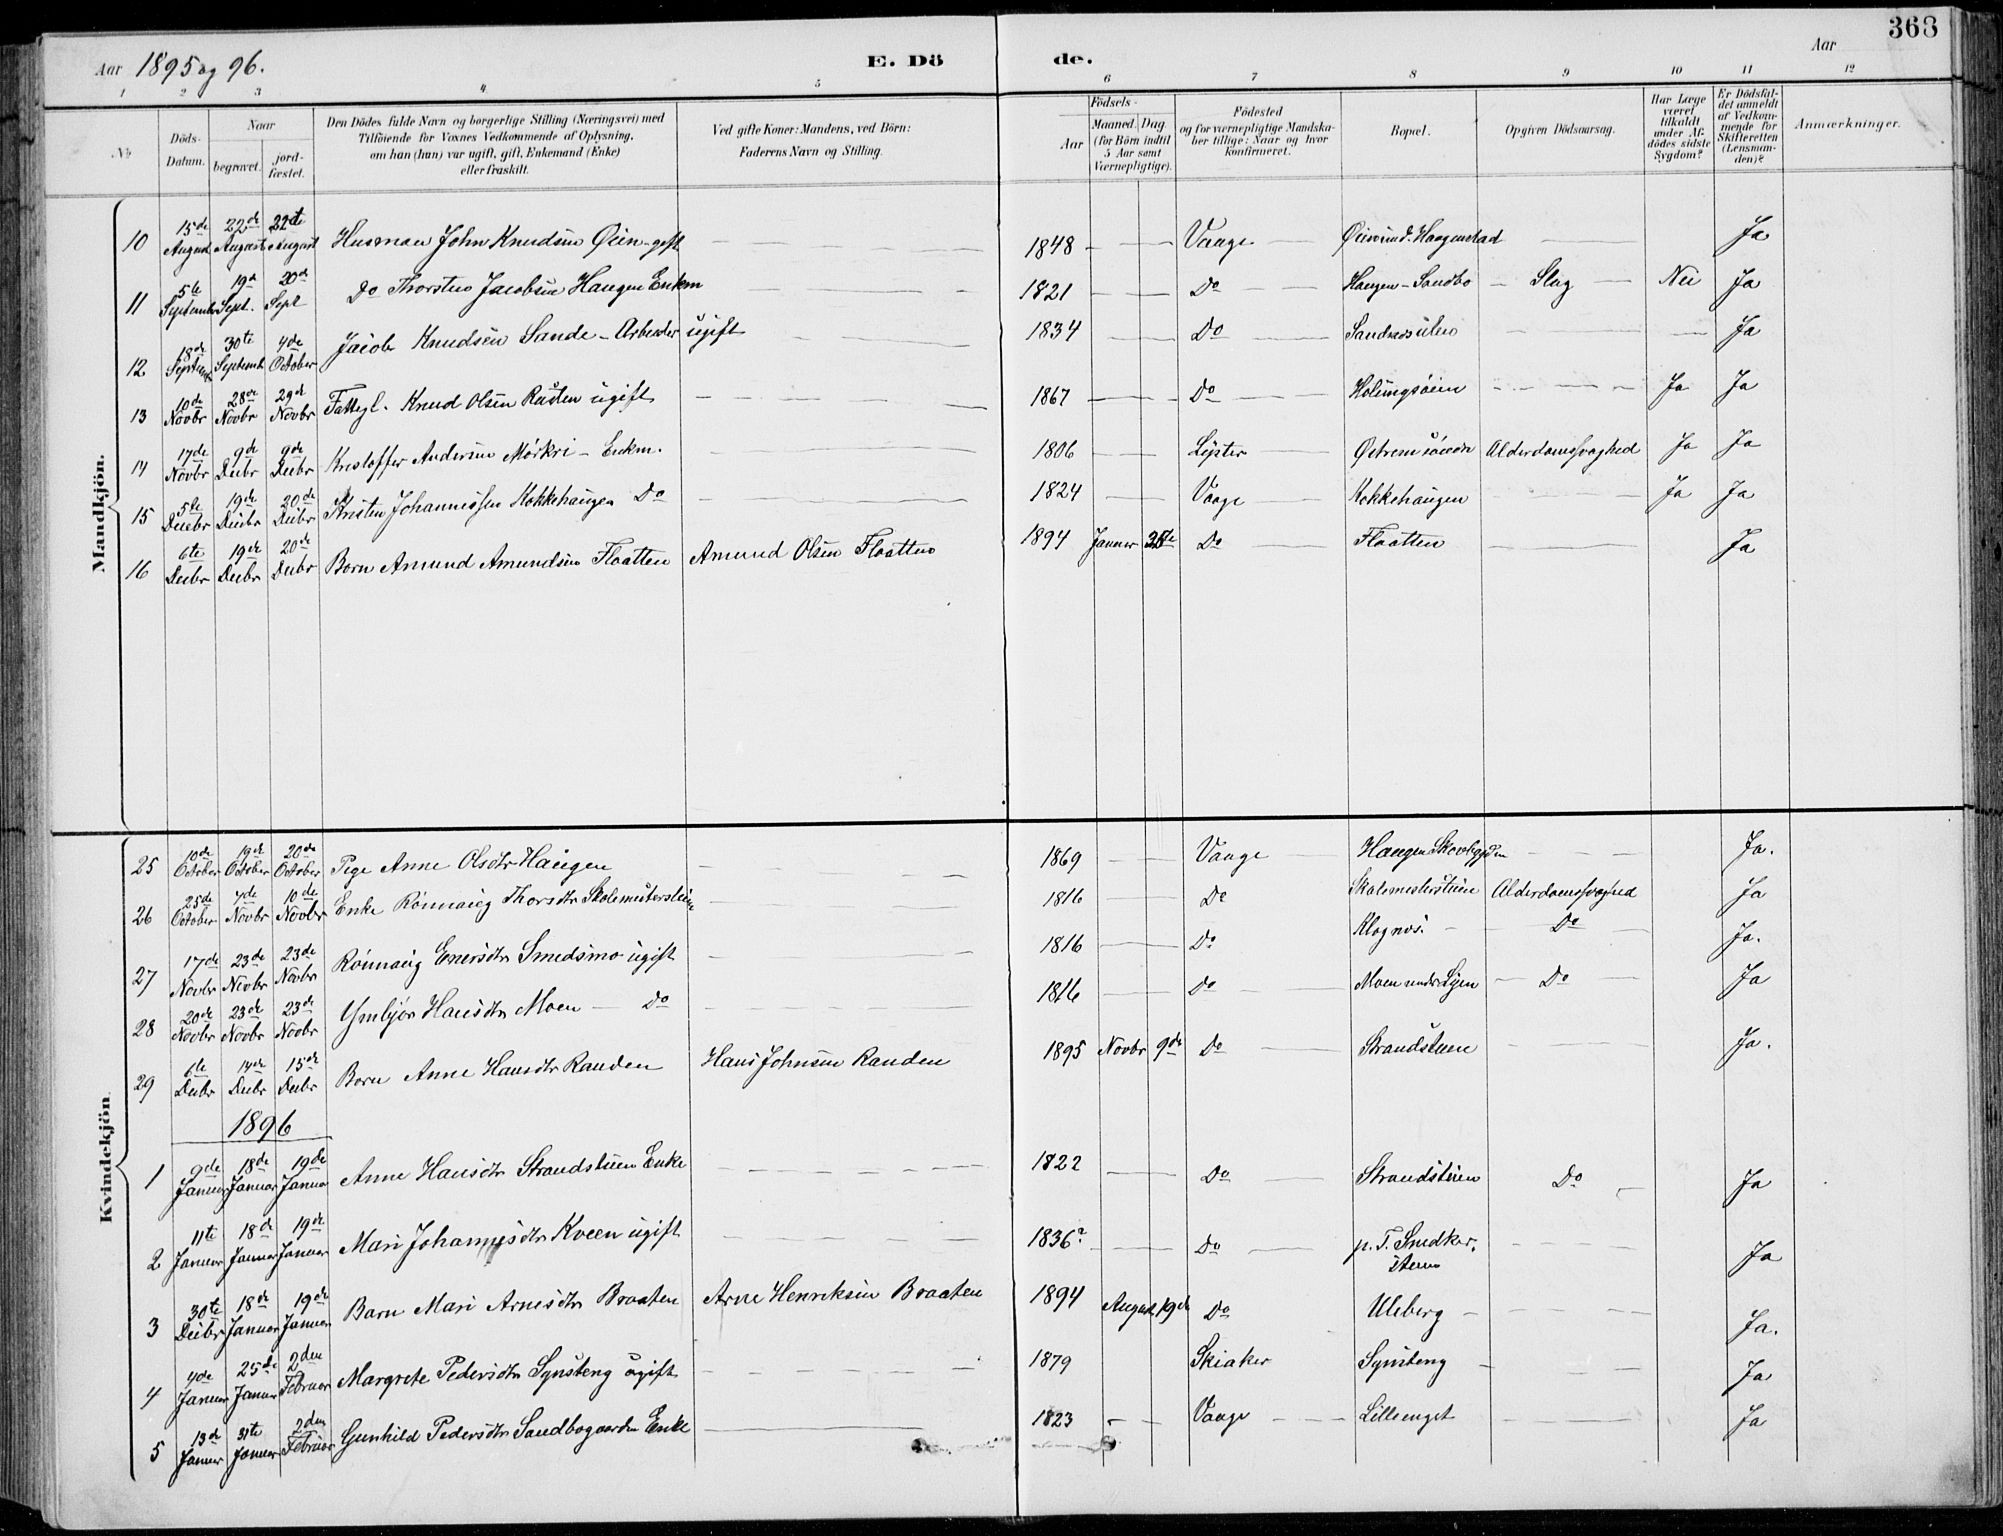 Aar 1895 og 96. E. Dö de. Aar 368
1 2 3 4 5 6 7 8 9 10 11 12
No
Döds-Datum.
Naar
begravet.
jord-fæstet.
Den Dödes fulde Navn og borgerlige Stilling (Næringsvei) med
Tilföiende for Voxnes Vedkommende af Oplysning,
om han (hun) var ugift, gift, Enkemand (Enke)
eller fraskilt.
Ved gifte Koner: Mandens, ved Börn:
Faderens Navn og Stilling.
Födsels-
Aar
Maaned. Dag.
(for Börn indtil
5 Aar samt
Værnepligtige).
Födested
og for værnepligtige Mandska-
ber tillige: Naar og hvor
konfirmeret.
Bopæl.
Opgiven Dödsaarsag.
Har Læge
været
tilkaldt
under Af-
dödes sidste
Sygdom?
Er Dödsfal-
det anmeldt
af Vedkom-
mende for
Skifteretten
(Lensman-
den)?
Anmærkninger.
Mandkjön.
10 15de August 22de August 22de August Husman John Knudsen Öien - gift 1848 Vaage Haagenstad Ja
11 5te September 19de Sept. 20de Sept Do Thorsten Jacobsen Haugen Enkm 1821 Do Haugen - Sandbo Slag Nei Ja
12 18de Septemb 30te Septemb 4de October Jacob Knudsen Sande - Arbeider ugift 1834 Do Ja
13 10de Novbr 28de Novbr 29de Novbr Fattigl. Knud Olsen Rusten ugift 1867 Do Holungsöien Ja Ja
14 17de Novbr 9de Decbr 9de Decbr Kristoffer Andersen Mörkri - Enkm. 1806 Lyster Alderdomssvaghed Ja Ja
15 5te Decbr 19de Decbr 20de Decbr Kristen Johannessen Kokkehaugen Do 1824 Vaage Kokkehaugen Ja Ja
16 6te Decbr 19de Decbr 20de Decbr Barn Amund Amundsen Flaatten Amund Olsen Flaatten 1894 Januar Do Flaatten Ja
Kvindekjön.
25 10de October 19de October 20de October Pige Anne Olsdtr Haugen 1869 Vaage Haugen Skovbygden Ja.
26 25de October 4de Novbr 10de Novbr Enke Rönnaug Thorsdtr Skolemesterstuen 1816 Do Skolemesterstuen Alderdomssvaghed Ja
27 17de Novbr 23de Novbr 23de Novbr Rönnaug Enersdtr Smedsmo ugift 1816 Do Klognæs Do Ja.
28 20de Novbr 23de Novbr 23de Novbr Ymbjör Hansdtr Moen - Do 1816 Do Moen under Syen Do Ja
29 6te Decbr 14de Decbr 15de Decbr Barn Anne Hansdtr Randen Hans Johnsen Randen 1895 Novbr 9de Do Strandstuen Ja.
1896
1 9de Januar 18de Januar 19de Januar Anne Hansdtr Strandstuen Enke 1822 Do Strandstuen Do Ja
2 11te Januar 18de Januar 19de Januar Mari Johannesdtr Kveen ugift 1836? Do p. T. Snedkerstuen Ja
3 30te Decbr 18de Januar 19de Januar Barn Mari Arnesdtr Braaten Arne Henriksen Braaten 1894 August 19de Do Uleberg Ja.
4 4de Januar 25de Januar 2den Februar Margrete Pedersdtr Synsteng ugift 1879 Skiaker Synsteng Ja
5 13de Januar 31te Januar 2den Februar Gunhild Pedersdtr Sandbogaarden Enke 1823 Vaage Lilleenget Ja